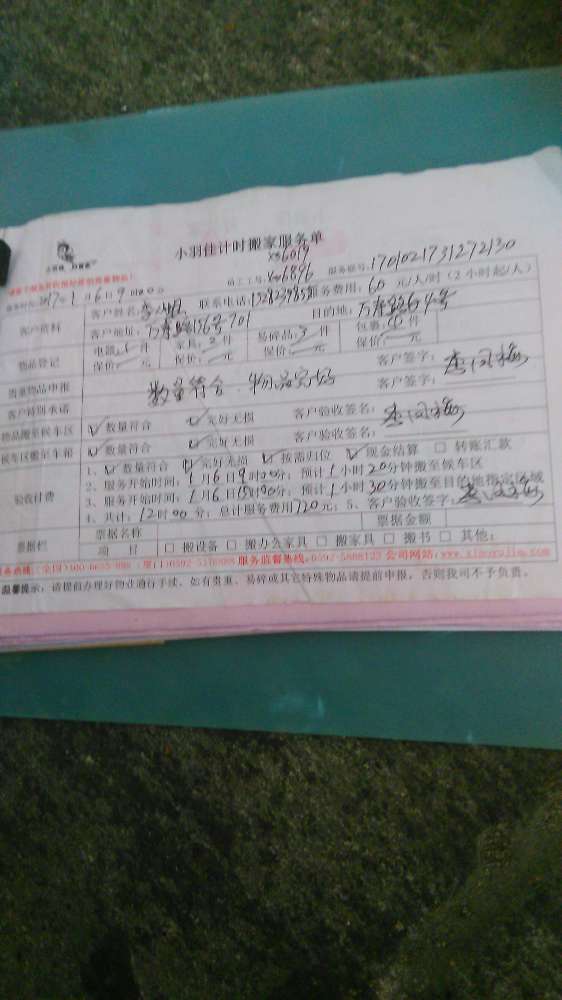 小羽佳计时搬家服务单
XS6019
员工工号: XS6896 服务单号: 1701021731272130
2017年1月6日9时00分
服务费用: 60 元/人/时 (2小时起/人)
客户资料 客户姓名: 联系电话:
客户地址: 万寿路156号701 目的地: 万寿路64号
物品登记 电器: 件 家具: 2件 易碎品: 件 包裹: 件
保价: 元 保价: 元 保价: 元 保价: 元
贵重物品申报 客户签字:
客户特别承诺 数量符合 物品完好 客户签字:
物品搬至候车区 ☑ 数量符合 ☑ 完好无损 客户验收签名:
候车区搬至车箱 ☑ 数量符合 ☑ 完好无损 客户验收签名:
验收付费 1、☑ 数量符合 ☑ 完好无损 ☑ 按需归位 ☑ 现金结算 □ 转账汇款
2、服务开始时间: 1月6日9时00分; 预计1小时20分钟搬至候车区
3、服务开始时间: 1月6日15时00分; 预计1小时30分钟搬至目的地指定区域
4、共计: 12时00分; 总计服务费用720元; 5、客户验收签字:
票据栏 票据名称 票据金额
项 目 □ 搬设备 □ 搬办公家具 □ 搬家具 □ 搬书 □ 其他:
服务监督热线: 0592-5888123 公司网站: www.xiaoyujia.com
温馨提示: 请提前办理好物业通行手续, 如有贵重、易碎或其它特殊物品请提前申报, 否则我司不予负责。